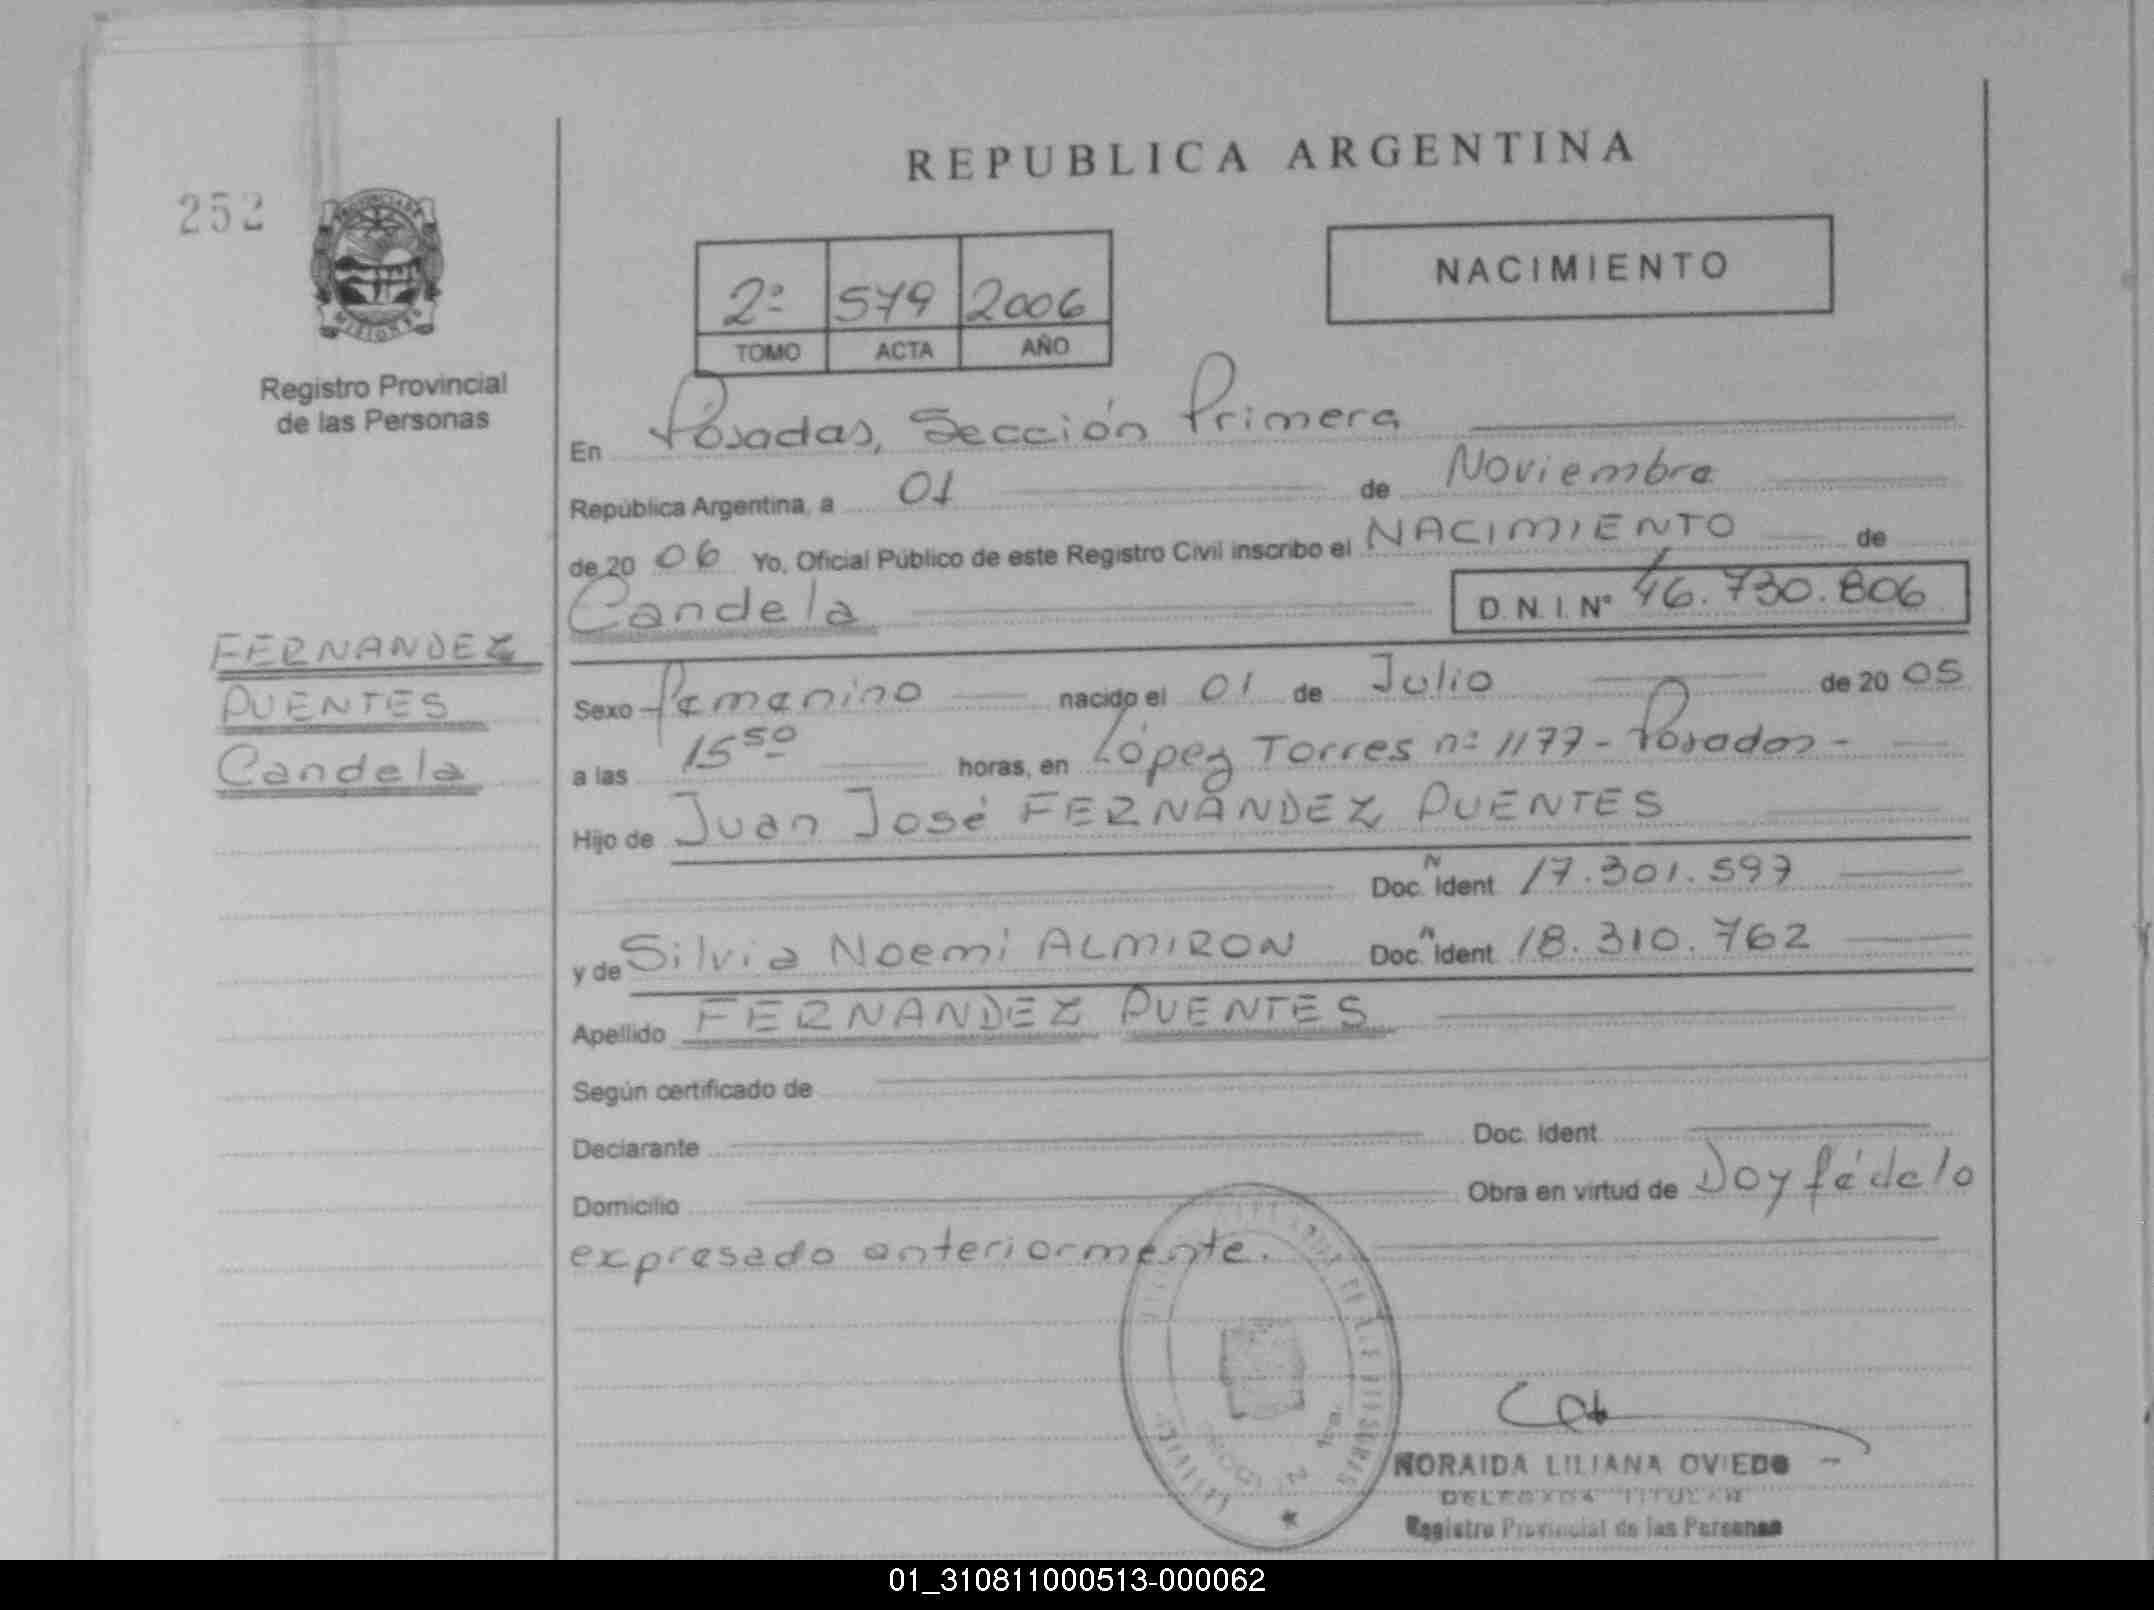 REPUBLICA ARGENTINA
252
NACIMIENTO
2º 579 2006
TOMO ACTA AÑO
Registro Provincial
de las Personas
En Posadas, Sección Primera
República Argentina, a 01 de Noviembre
de 20 06 Yo, Oficial Público de este Registro Civil inscribo el NACIMIENTO de
Candela D.N.I. Nº 46.730.806
FERNANDEZ
PUENTES
Candela
Sexo Femenino nacido el 01 de Julio de 20 05
a las 15 50 horas, en López Torres nº 1177 - Posadas -
Hijo de Juan José FERNÁNDEZ PUENTES
Doc. N Ident 17.301.597
y de Silvia Noemí ALMIRON Doc. N Ident 18.310.762
Apellido FERNANDEZ PUENTES
Según certificado de
Declarante Doc. Ident
Domicilio Obra en virtud de Doy fé de lo
expresado anteriormente.
NORAIDA LILIANA OVIEDO
DELEGADA TITULAR
Registro Provincial de las Personas
01_310811000513-000062